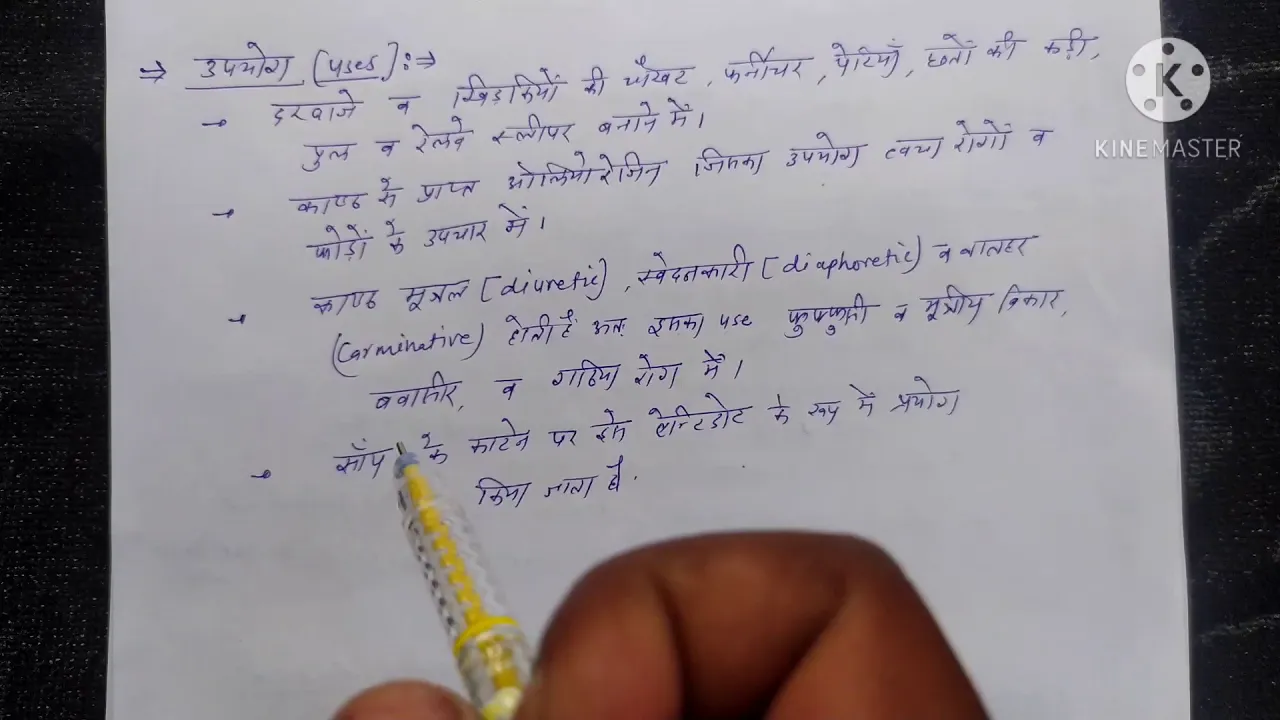 ⇒ उपयोग (uses):⇒
→ दरवाजे व खिडकियों की चौखट, फर्नीचर, पेटियाँ, छतों की कड़ी,
पुल व रेलवे स्लीपर बनाने में।
→ काण्ठ से प्राप्त ओलियोरेजिन जिसका उपयोग त्वचा रोगों व
फोड़ों के उपचार में।
→ काण्ठ मूत्रल (diuretic), स्वेदनकारी (diaphoretic) व वातहर
(carminative) होती है अतः इसका use फुफ्फुसी व मूत्रीय विकार,
बवासीर, व गठिया रोग में।
→ साँप के काटने पर इसे एन्टिडोट के रूप में प्रयोग
किया जाता है.
K
KINEMASTER